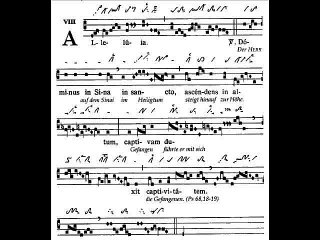 VIII
A L- le- lú- ia. ℣. Dó-
Der HERR
minus in Sina in san- cto, ascéndens in al-
auf dem Sinai im Heiligtum steigt hinauf zur Höhe.
tum, capti- vam du-
Gefangen führte er mit sich
xit capti-vi-tá- tem.
die Gefangenen. (Ps 68,18-19)